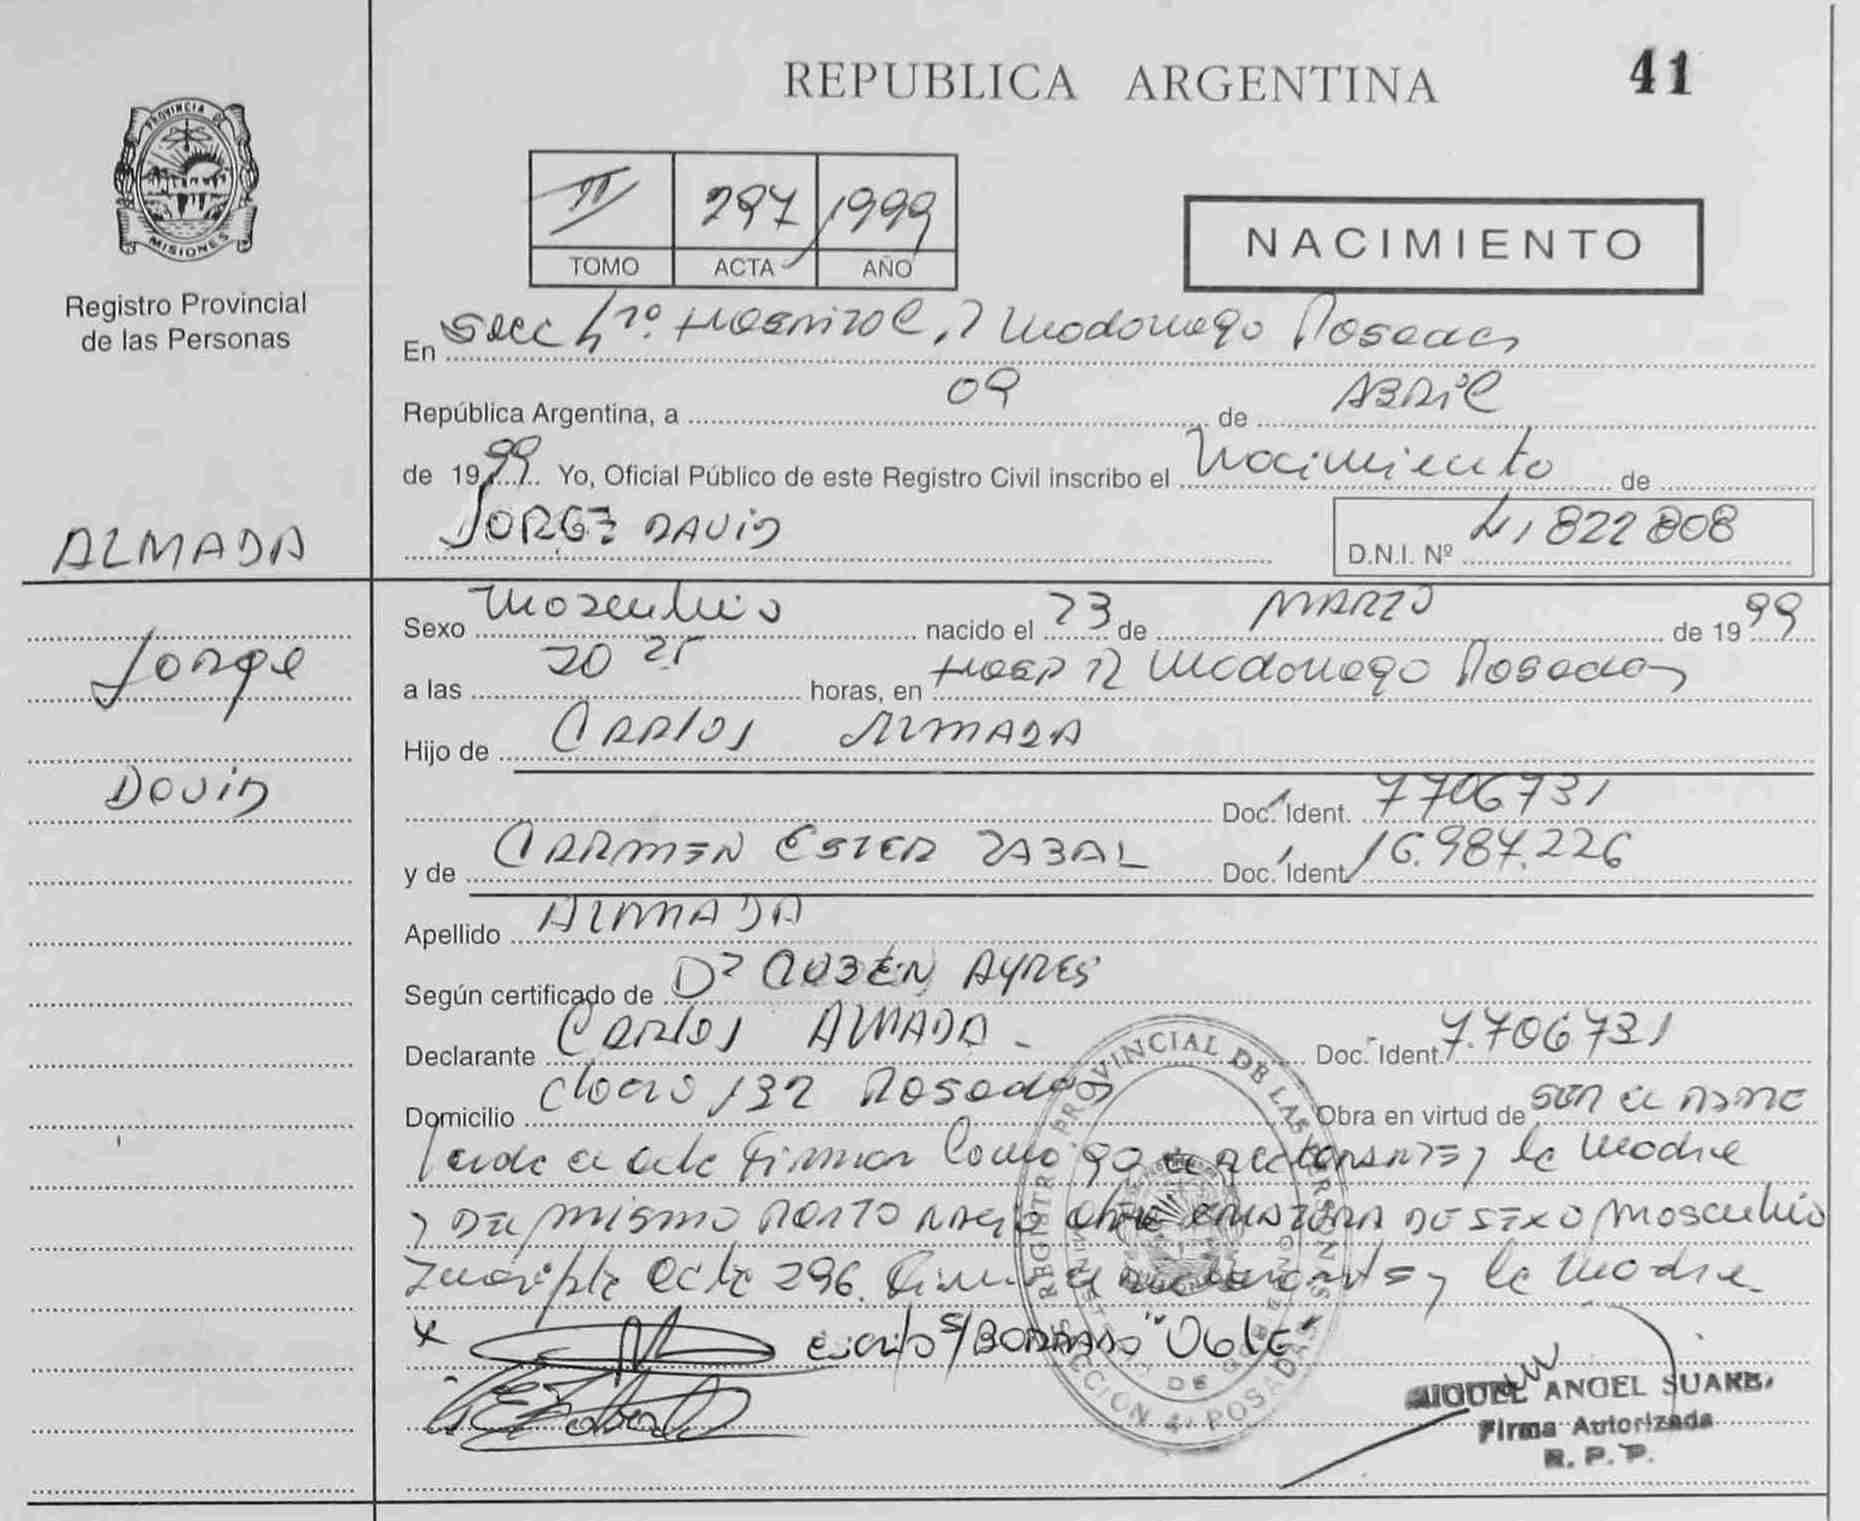 REPUBLICA ARGENTINA
41
PROVINCIA DE
MISIONES
Registro Provincial
de las Personas
II 297 1999
TOMO ACTA AÑO
NACIMIENTO
En Secc 4ª. Hospital R Madariaga Posadas
República Argentina, a 09 de ABRIL
de 1999 Yo, Oficial Público de este Registro Civil inscribo el Nacimiento de
JORGE DAVID
D.N.I. Nº 41 822 808
ALMADA
Jorge
David
Sexo Masculino nacido el 23 de MARZO de 1999
a las 20 25 horas, en Hosp R Madariaga Posadas
Hijo de CARLOS ALMADA
Doc. Ident. 7706731
y de CARMEN ESTER ZABAL Doc. Ident. 16.987.226
Apellido ALMADA
Según certificado de Dr RUBEN AYRES
Declarante CARLOS ALMADA - Doc. Ident. 7.706731
Domicilio 132 Posadas Obra en virtud de SER EL PADRE
Leida el acta Firman Conmigo el declarante y la Madre
y DEL MISMO PARTO NACIO OTRA CRIATURA DE SEXO Masculino
Inscripta Acta 296. Firma el declarante y la Madre
x S/BORRADO "Vale"
REGISTRO PROVINCIAL DE LAS PERSONAS
SECCION 4ª POSADAS
MIGUEL ANGEL SUAREZ
Firma Autorizada
R. P. P.